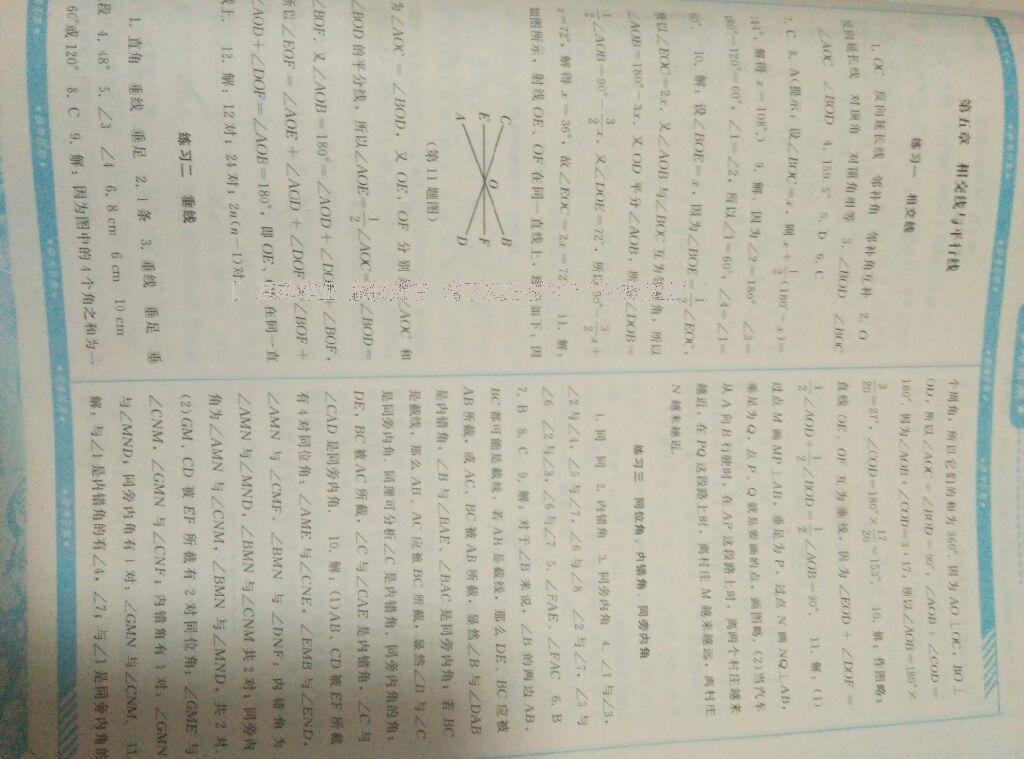 第五章 相交线与平行线
练习一 相交线
1. OC 反向延长线 邻补角 邻补角互补 2. O
反向延长线 对顶角 对顶角相等 3. ∠BOD ∠BOC
∠AOC ∠BOD 4. 159.5° 5. D 6. C
7. C 8. A(提示:设∠BOC=x,则 x+½(180°-x)=
144°,解得 x=108°.) 9. 解:因为∠2=180°-∠3=
180°-120°=60°,∠1=∠2,所以∠1=60°,∠4=∠1=
60°. 10. 解:设∠BOE=x,因为∠BOE=½∠EOC,
所以∠EOC=2x,又∠AOB与∠BOC互为邻补角,所以
∠AOB=180°-3x,又OD平分∠AOB,所以∠DOB=
½∠AOB=90°-3/2x,又∠DOE=72°,所以90°-3/2x+
x=72°,解得 x=36°,故∠EOC=2x=72°. 11. 解:
如图所示,射线OE、OF在同一直线上,理由如下:因
C B
E O F
A D
(第11题图)
为∠AOC=∠BOD,又OE、OF分别是∠AOC和
∠BOD的平分线,所以∠AOE=½∠AOC=½∠BOD=
∠BOF,又∠AOB=180°=∠AOD+∠DOF+∠BOF,
所以∠EOF=∠AOE+∠AOD+∠DOF=∠BOF+
∠AOD+∠DOF=∠AOB=180°,即OE、OF在同一直
线上. 12. 解:12对;24对;2n(n-1)对.
练习二 垂线
1. 直角 垂线 垂足 2. 1条 3. 垂线 垂足 垂
段 4. 48° 5. ∠3 ∠4 6. 8 cm 6 cm 10 cm
60°或120° 8. C 9. 解:因为图中的4个角之和为一
个周角,所以它们的和为360°.因为AO⊥OC,BO⊥
OD,所以∠AOC=∠BOD=90°,∠AOB+∠COD=
180°.因为∠AOB:∠COD=3:17,所以∠AOB=180°×
3/20=27°,∠COD=180°×17/20=153°. 10. 解:作图略;
直线OE、OF互为垂线,因为∠EOD+∠DOF=
½∠AOD+½∠BOD=½∠AOB=90°. 11. 解:(1)
过点M画MP⊥AB,垂足为P,过点N画NQ⊥AB,
垂足为Q,点P、Q就是要画的点,画图略;(2)当汽车
从A向B行驶时,在AP这段路上时,离两个村庄越来
越近,在PQ这段路上时,离村庄M越来越远,离村庄
N越来越近.
练习三 同位角、内错角、同旁内角
1. 同 同 2. 内错角 3. 同旁内角 4. ∠1与∠3,
∠2与∠4,∠5与∠7,∠6与∠8 ∠2与∠7,∠3与
∠6 ∠2与∠3,∠6与∠7 5. ∠FAE ∠FAC 6. B
7. B 8. C 9. 解:对于∠B来说,∠B的两边AB、
BC都可能是截线,若AB是截线,那么DE、BC应被
AB所截,或AC、BC被AB所截,显然∠B与∠DAB
是内错角,∠B与∠BAE、∠BAC是同旁内角;若BC
是截线,那么AB、AC应被BC所截,显然∠B与∠C
是同旁内角,同理可分析∠C是内错角、同旁内角的角:
DE、BC被AC所截,∠C与∠CAE是内错角,∠C与
∠CAD是同旁内角. 10. 解:(1)AB、CD被EF所截
有4对同位角:∠AME与∠CNE,∠EMB与∠END,
∠AMN与∠CMF,∠BMN与∠DNF;内错角为
∠AMN与∠MND,∠BMN与∠CNM共2对;同旁内
角为∠AMN与∠CNM,∠BMN与∠MND,共2对.
(2)GM、CD被EF所截有2对同位角:∠GME与
∠CNM,∠GMN与∠CNF;内错角有1对:∠GMN
与∠MND;同旁内角有1对:∠GMN与∠CNM. 11.
解:与∠1是内错角的有∠4,∠7;与∠1是同旁内角的